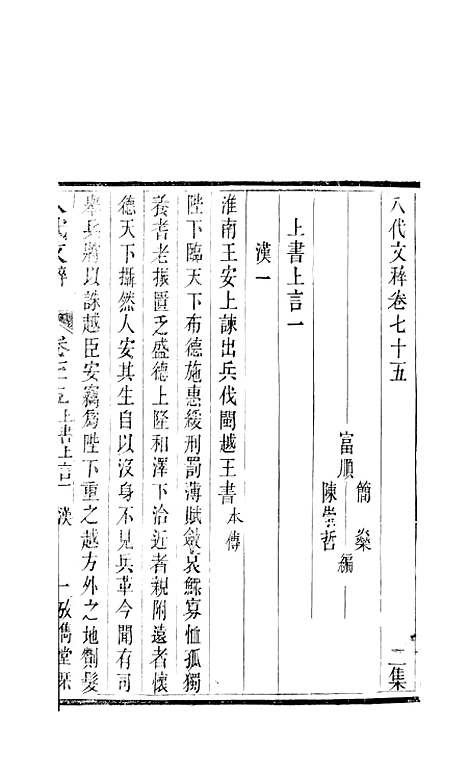 八代文粹卷七十五　二集
簡燊
富順　編
陳崇哲
上書上言一
漢一
淮南王安上諫出兵伐閩越王書 本傳
陛下臨天下布德施惠緩刑罰薄賦斂哀鰥寡恤孤獨
養耆老振匱乏盛德上隆和澤下洽近者親附遠者懷
德天下攝然人安其生自以沒身不見兵革今聞有司
舉兵將以誅越臣安竊爲陛下重之越方外之地劗髮
八代文粹　卷七十五上書上言一　漢　一　攷儁堂栞